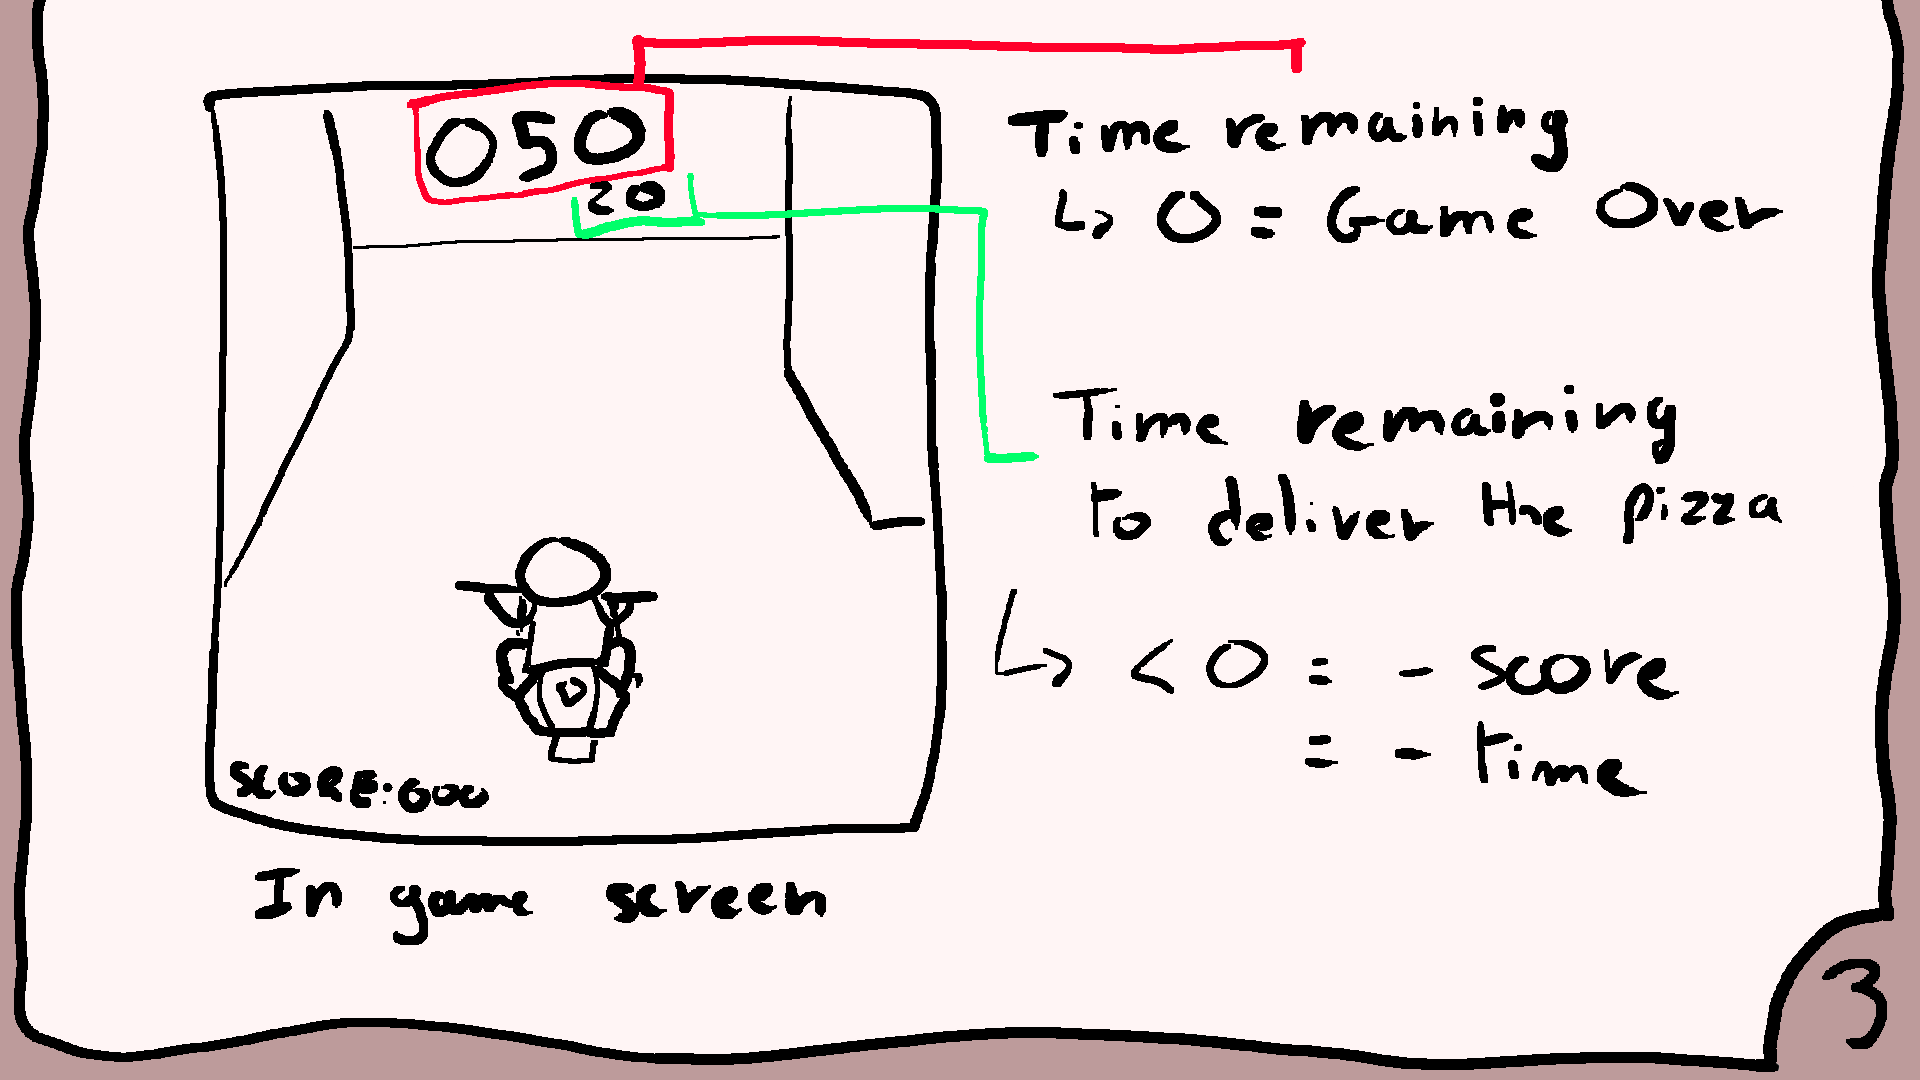 050
20
SCORE:000
In game screen
Time remaining
↳ 0 = Game Over
Time remaining
to deliver the pizza
↳ < 0 = - score
= - time
3